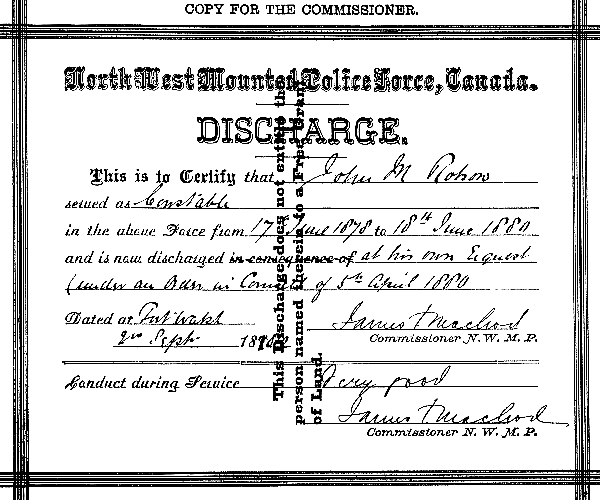 COPY FOR THE COMMISSIONER.
North West Mounted Police Force, Canada.
DISCHARGE.
This is to Certify that John M Robson
served as Constable
in the above Force from 17 June 1878 to 18th June 1880
and is now discharged in consequence of at his own Request
(under an Order in Council of 5th April 1880
Dated at Fort Walsh
2nd Septr 1880
James F Macleod
Commissioner N. W. M. P.
Conduct during Service Very good
James F Macleod
Commissioner N. W. M. P.
This Discharge does not entitle the
person named therein to a Free Grant
of Land.